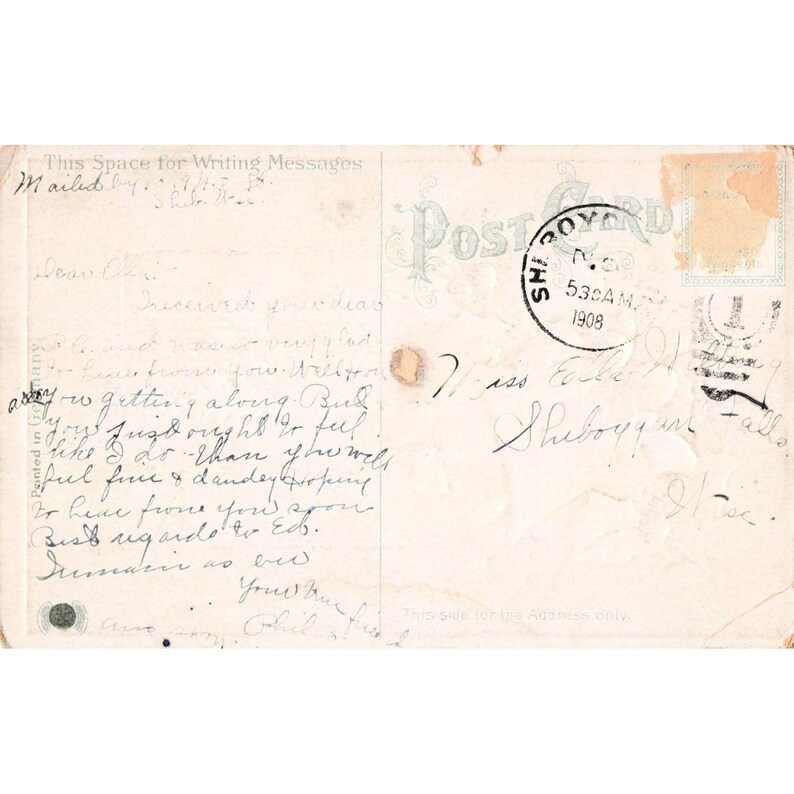 This Space for Writing Messages
Mailed by
Sheb. Wis.
POST CARD
SHEBOYG
530 AM
1908
Dear
I received your dear
P.C. and was so very glad
to hear from you. Well how
are you getting along. But
you just ought to feel
like I do. than you will
feel fine & dandey Hoping
to hear from you soon
Best regards to Ed.
I remain as ever
Your true friend
Phil
Miss Ella
Sheboygan Falls
Wisc.
Printed in Germany
This side for the Address only.